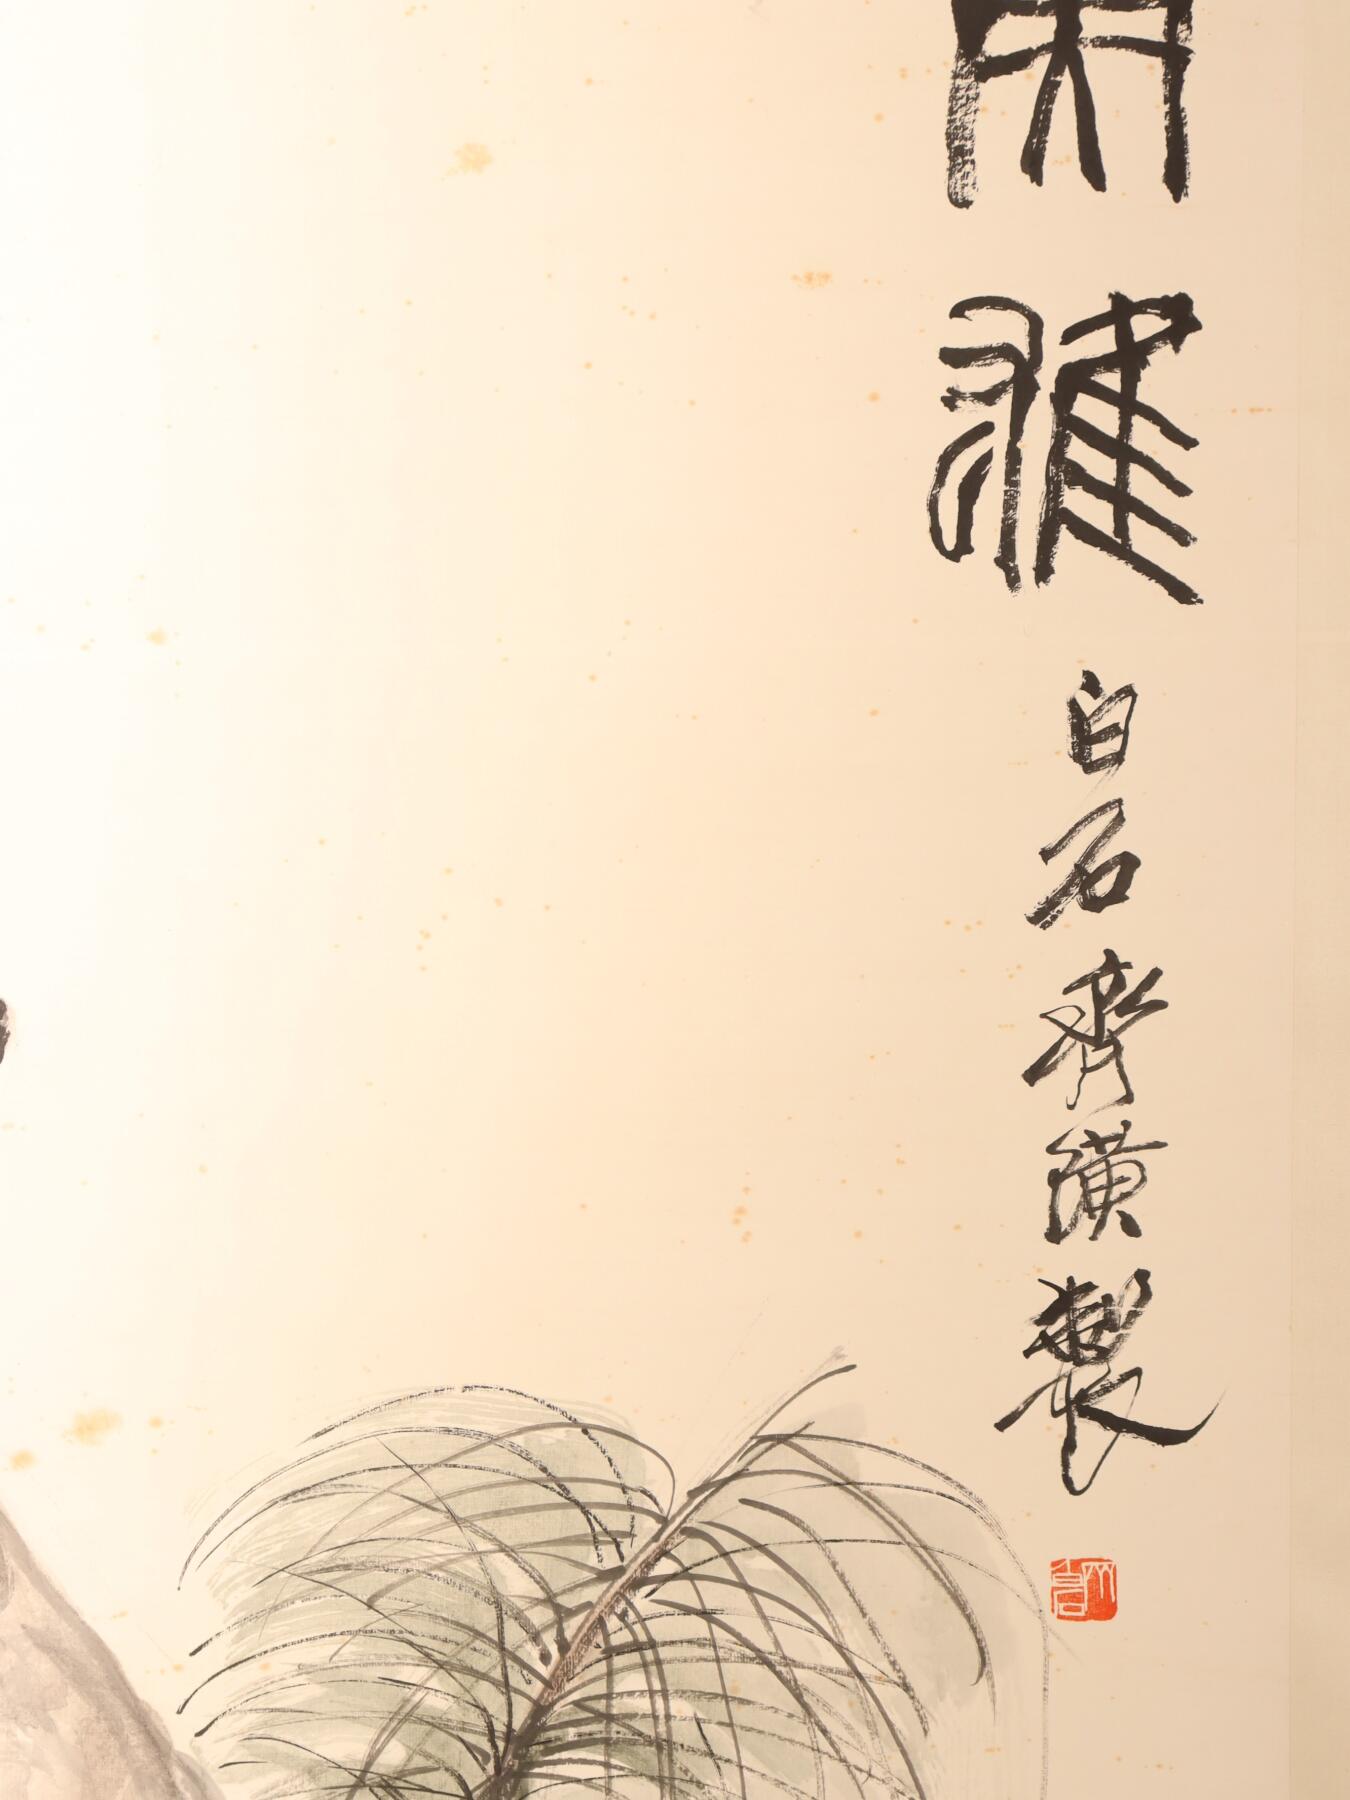 雄
白石齊璜製